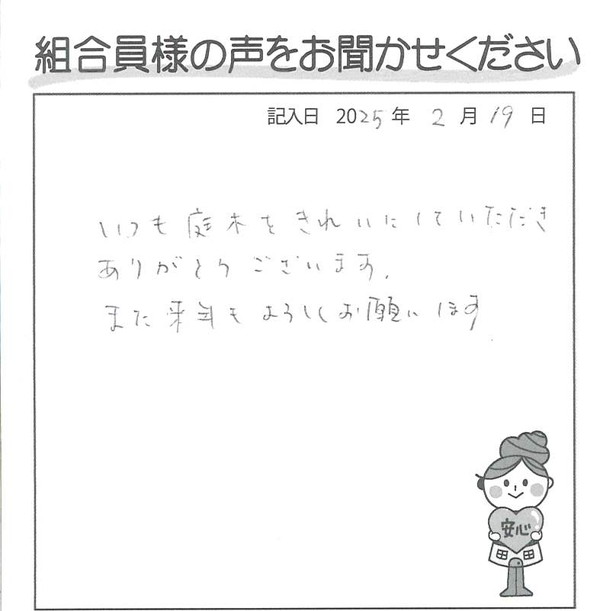 組合員様の声をお聞かせください
記入日 2025年 2月 19日
いつも庭木をきれいにしていただき
ありがとうございます。
また来年もよろしくお願いします
安心